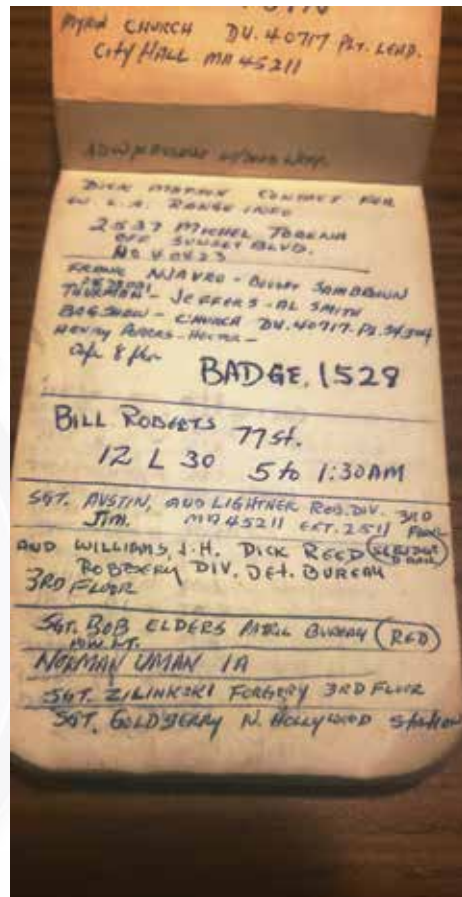 MYRON CHURCH DU. 40717 PLT. LEAD.
City HALL MA 45211
DICK CONTACT FOR
L.A. RANGE INFO
2537 MICHEL TORENA
OFF SUNSET BLVD.
NO 40823
FRANK NAVRO - SAM BROWN
THURMAN - JEFFERS - AL SMITH
BAGSHAW - CHURCH DU. 40717
HENRY
8 PM
BADGE. 1529
BILL ROBERTS 77 St.
12 L 30 5 to 1:30 AM
SGT. AUSTIN, AND LIGHTNER ROB. DIV. 3RD
Jim. MA 45211 EXT. 2511 FLOOR
AND WILLIAMS, J.H. DICK REED
ROBBERY DIV. DET. BUREAU
3RD FLOOR
SGT. BOB ELDERS BUREAU (RED)
NOW LT.
NORMAN UMAN 1A
SGT. ZILINKSKI FORGERY 3RD FLOOR
SGT. GOLDBERRY N. HOLLYWOOD StAtion